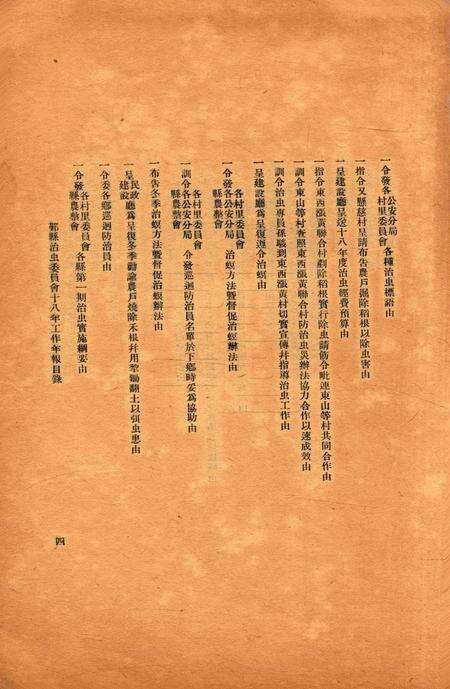 一令發各公安分局村里委員會各種治虫標語由
一指令又縣慈村呈請布告農戶掘除稻根以除虫害由
一呈建設廳呈送十八年度治虫經費預算由
一指令東西漲黃聯合村剷除稻根實行除虫請飭令毗連東山等村共同合作由
一訓令東山等村查照東西漲黃聯合村防治虫災辦法協力合作以速成效由
一訓令治虫專員孫 到東西漲黃村切實宣傳幷指導治虫工作由
一呈建設廳爲呈復遵令治螟由
一令發各村里委員會各公安分局縣農整會治螟方法暨督促治螟辦法由
一訓令各村里委員會各公安分局縣農整會令發巡迴防治員名單於下鄉時妥爲協助由
一布告冬季治螟方法暨督促治螟辦法由
一呈民政建設廳爲呈復冬季勸諭農戶燒除禾根幷用犂鋤翻土以弭虫患由
一令委各鄉巡迴防治員由
一令發各村里委員會縣農整會各縣第一期治虫實施綱要由
鄞縣治虫委員會十八年工作年報目錄
四